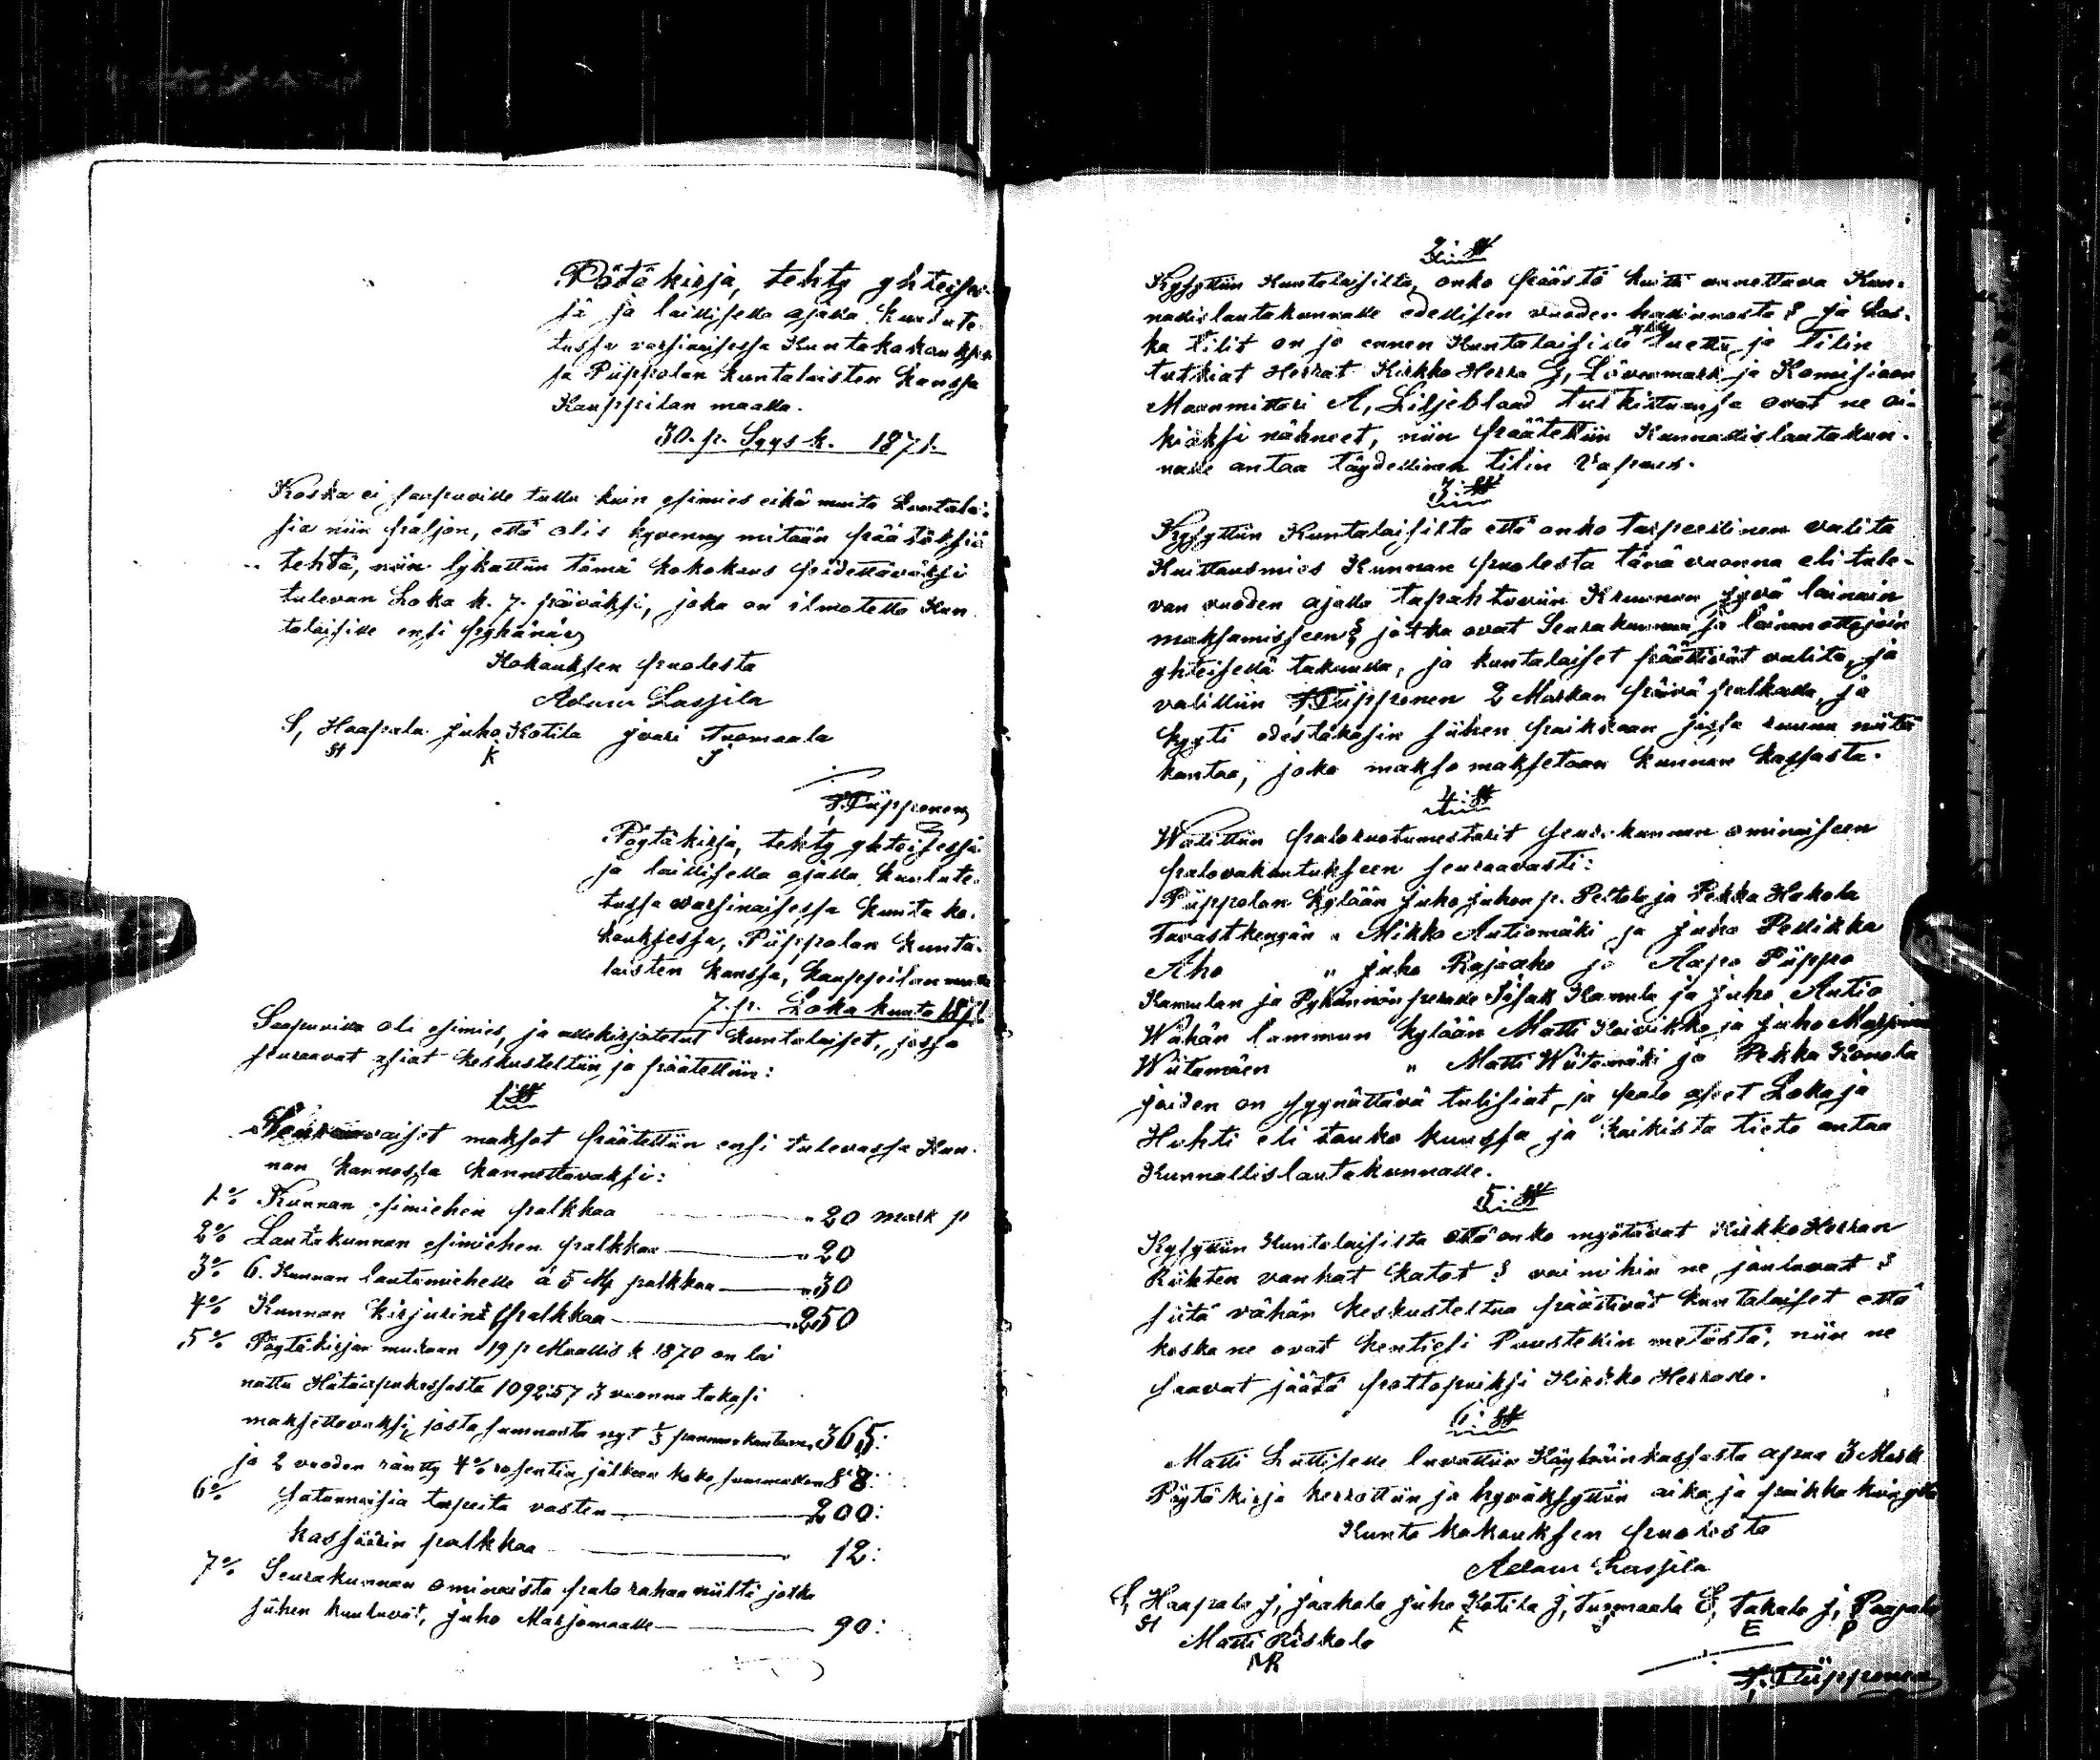 Pötäkirja, tehty yhteises-
sä ja laillisella ajalla kuulute-
tussa varsinaisessa Kuntakokoukses-
sa Piippolan kuntalaisten kanssa
Kauppilan maalla.
30. p. Syys k. 1871.
Koska ei saapuville tullu kuin esimies eikä muita kuntalai-
sia niin paljon, että olis kyvenny mitään päätöksiä
tehtä, niin lykättiin tämä kokokous pidettäväksi
tulevan Loka k. 7. päiväksi, joka on ilmotettu Kun
talaisille ensi pyhänä
Kokouksen puolesta
Adam Lassila
S, Haapala Juho Kotila Ivari Tuomaala
SH K J
P. Piipponen
Pöytäkirja, tehty yhteisessä
ja laillisella ajalla kuulute-
tussa varsinaisessa kunta ko-
kouksessa, Piippolan kunta-
laisten kanssa, kauppilan maalla
7. p. Loka kuuta 1871.
Saapuvilla oli esimies, ja allekirjotetut kuntalaiset, jossa
seuraavat asiat keskusteltiin ja päätettiin:
1:§
Seuraavaiset maksot päätettiin ensi tulevassa Kun-
nan kannossa kannettavaksi:
1% Kunnan esimiehen palkkaa " 20 mark p
2% Lautakunnan esimiehen palkkaa " 20
3% 6. Kunnan lautamiehelle á 5 Mk palkkaa " 30
4% Kunnan kirjurin palkkaa " 250
5% Pöytäkirjan mukaan 19 p Maalis k 1870 on lai
nattu Hätäapukassasta 1092:57 3 vuonna takasi
maksettavaksi, josta summasta nyt 1/3 pannaan kantoon, 365:
ja 2 vuoden räntty 4% rosentin jälkeen koko summalle 88:
6% satunnaisia tarpeita vasten 200:
kassöörin palkkaa 12:
7% Seurakunnan ominaista palo rahaa niiltä jotka
siihen kuuluvat, juho Marjomaalle 90:
2:§
Kysyttiin Kuntalaisilta, onko päästö kuitti annettava Kun-
nallislautakunnalle edellisen vuoden hallinnosta? ja kos-
ka tilit on jo ennen Kuntalaisille luettu, ja tilin
tutkiat Herrat Kirkko Herra J, Lövenmark ja Komisioon
Maanmittari A, Liljeblaad tutkistuansa ovat ne oi-
kiaksi nähneet, niin päätettiin Kunnallislautakun-
nalle antaa täydellinen tilin vapaus.
3:§
Kysyttiin Kuntalaisilta että onko tarpeellinen valita
Kuittausmies Kunnan puolesta tänä vuonna eli tule-
van vuoden ajalla tapahtuviin Kruunun jyvä lainain
maksamisseen? jotka ovat Seurakunnan ja lainanottajoin
yhteisellä takuulla, ja kuntalaiset päättivät valita, ja
valittiin P. Piipponen 2 Markan päivä palkalla, ja
kyyti edestakasin siihen paikkaan jossa ruunu niitä
kantaa, joka makso maksetaan kunnan kassasta.
4:§
Walittiin paloruotumestarit seurakunnan ominaiseen
palovakuutukseen seuraavasti:
Piippolan kylään Juho Juhon p. Peltola ja Pekka Hakola
Tavastkengän " Mikko Autiomäki ja Juho Pellikka
Aho " Juho Rajaaho ja Aapo Piippo
Kamulan ja Pykännön perälle Iisak Kamula ja Juho Autio
Wähän lammin kylään Matti Koivikko ja Juho Marjomaa
Wiitamäen " Matti Wiitamäki ja Pekka Konola
joiden on syynättävä tulisiat, ja palo aseet Loka ja
Huhti eli touko kuussa ja kaikista tieto antaa
Kunnallislautakunnalle.
5:§
Kysyttiin Kuntalaisilta että onko myötävät Kirkko Herran
Riihten vanhat katot? vai mihin ne joutuvat?
siitä vähän keskusteltua päättivät kuntalaiset että
koska ne ovat kentiesi Puustellin metästä, niin ne
saavat jäätä polttopuiksi Kirkko Herralle.
6:§
Matti Luttiselle luvattiin Käyhäinkassasta apua 3 Mark
Pöytäkirja kerrottiin ja hyväksyttiin aika ja paikka kuin yllä
Kunta kokouksen puolesta
Adam Lassila
S, Haapala J, Jaakola Juho Kotila J, Tuomaala E, Takalo J, Paapala
SH K J E P
Matti Riskala
MR
P. Piipponen